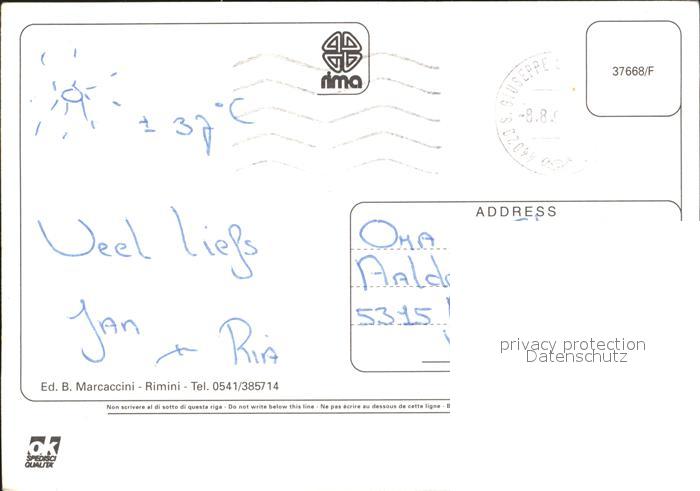 rima
37668/F
44020 S. GIUSEPPE
-8.8.
± 37 °C
Veel liefs
Jan
+ Ria
ADDRESS
Oma
5315
privacy protection
Datenschutz
Ed. B. Marcaccini - Rimini - Tel. 0541/385714
Non scrivere al di sotto di questa riga - Do not write below this line - Ne pas écrire au dessous de cette ligne - B
ok
SPEDISCI
QUALITÀ